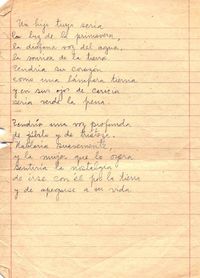 Un hijo tuyo sería
la luz de la primavera,
la diáfana voz del agua,
la sonrisa de la tierra.
Tendría su corazón
como una lámpara tierna
y en sus ojos de caricia
sería verde la pena.
Tendría una voz profunda
de y de tristeza.
Hablaría suavemente,
y la mujer que lo oyera
sentiría la nostalgia
de irse con él por la tierra
y de apegarse a su vida